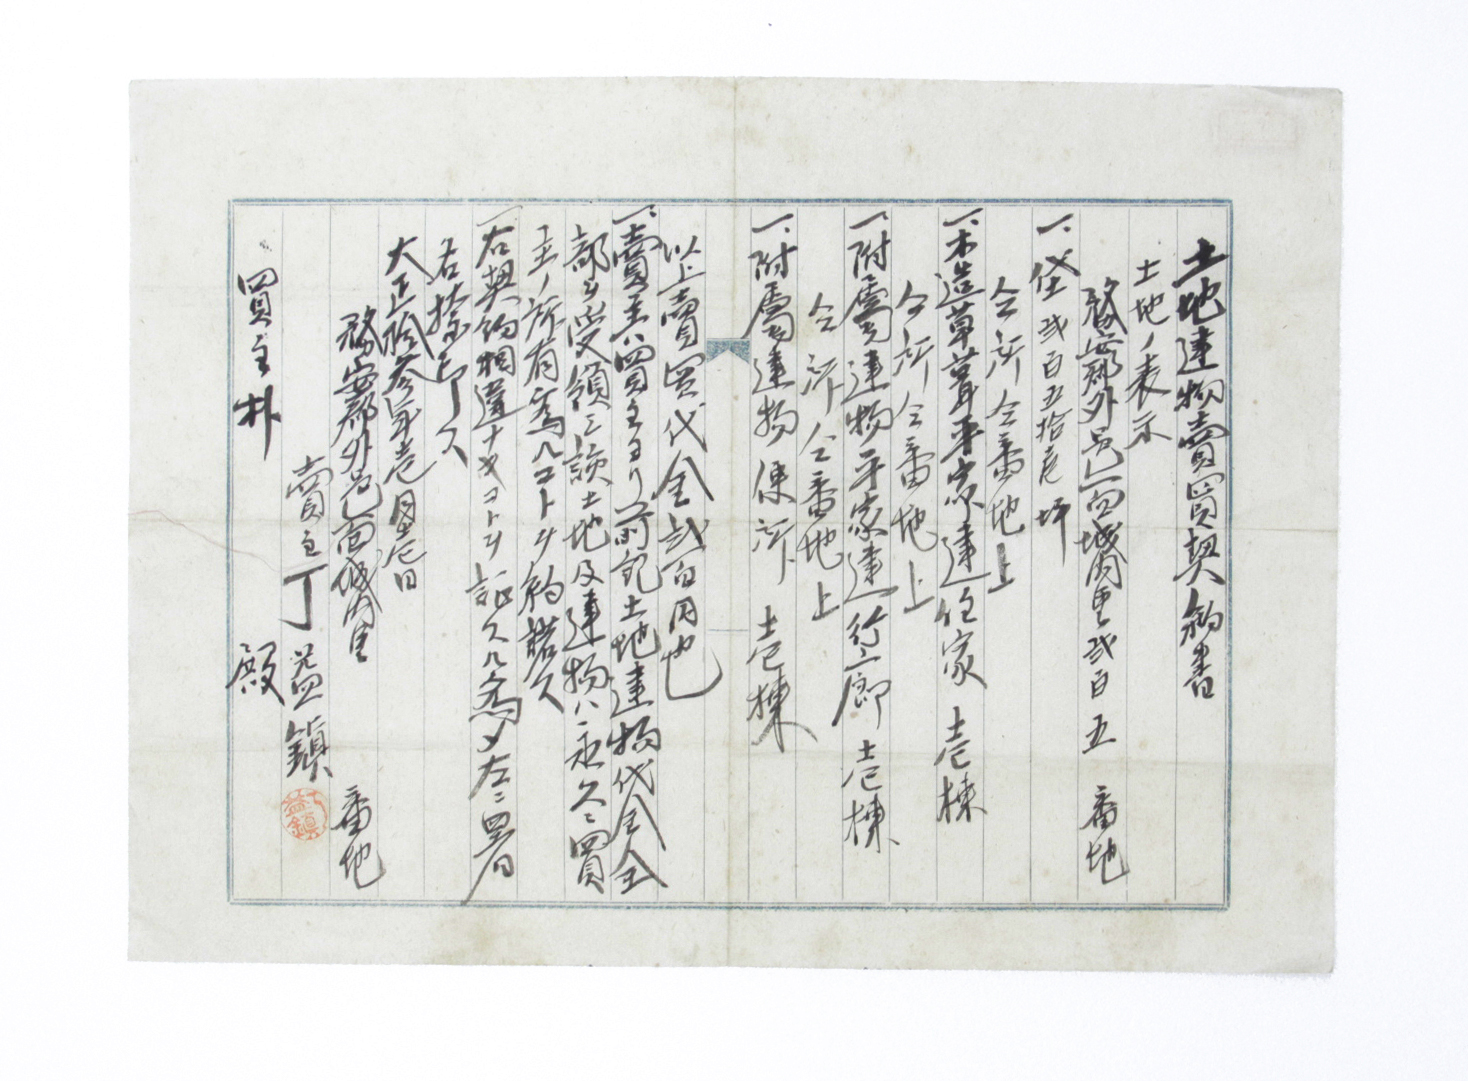 土地建物賣買契約書
土地ノ表示
務安郡外邑面城内里弐百五 番地
一、垈弐百五拾壱坪
仝所仝番地上
一、木造草葺平家建住家 壱棟
仝所仝番地上
一、附属建物平家建行廊 壱棟
仝所仝番地上
一、附属建物便所 壱棟
以上賣買代金弐百円也
一、賣主ハ買主ヨリ前記土地建物代金全
部ヲ受領シ該土地及建物ハ永久ニ買
主ノ所有為ルコトヲ約諾ス
一、右契約相違ナキコトヲ証スル為メ左ニ署
名捺印ス
大正拾参年壱月壱日
務安郡外邑面城内里 番地
賣主 丁益鎮
丁益鎮
買主 朴 殿